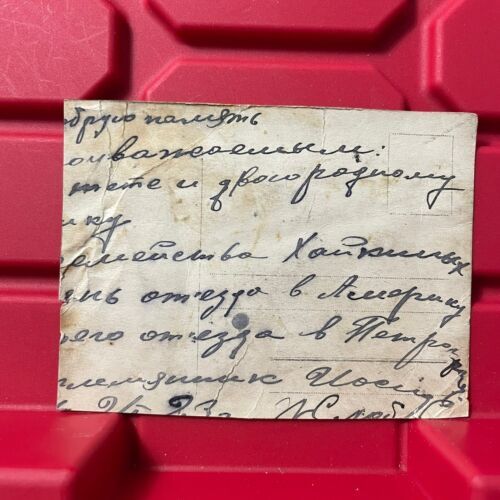 обрую память
оуважаемым:
тете и двоюродному
ику
семейства Хайкиных
ень отъезда в Америку
его отъезда в Петроград
племянник Иосиф
23г.